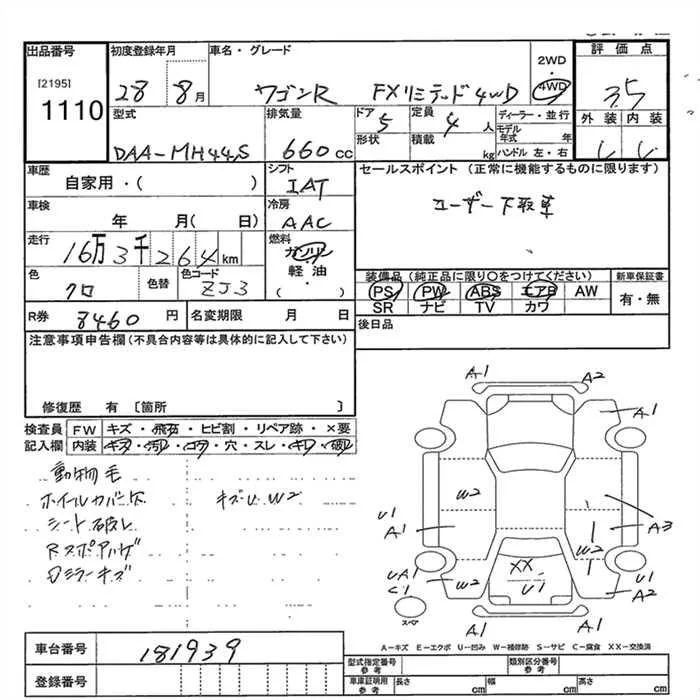 出品番号 初度登録年月 車名・グレード 2WD 評価点
[2195] 1110 28 8月 ワゴンR FXリミテッド 4WD 4WD 3.5
型式 排気量 ドア 5 定員 4人 ディーラー・並行 外装 内装
DAA-MH44S 660cc 形状 積載 kg モデル年式 年 ハンドル 左・右
車歴 シフト セールスポイント (正常に機能するものに限ります)
自家用・( ) IAT
車検 冷房 ユーザー下取車
年 月( 日) AAC
走行 16万3千264km 燃料 ガソリン
軽油
( )
色 クロ 色替 色コード ZJ3
装備品 (純正品に限り○をつけてください) 新車保証書
PS PW ABS エアB AW 有・無
SR ナビ TV カワ
R券 8460円 名変期限 月 日 後日品
注意事項申告欄(不具合内容等は具体的に記入して下さい)
修復歴 有 [箇所 ]
検査員 FW キズ・飛石・ヒビ割・リペア跡・×要
記入欄 内装 キズ・汚レ・コゲ・穴・スレ・キレ・破レ
動物毛
ホイールカバー欠 キズU W2
シート破レ
Rスポアハゲ
Dミラーキズ
A1 A2
A1
W2
U1
A1 A3
W2
UA1
C1 W2 XX U1 U1
A2
スペア A1 A1
A-キズ E-エクボ U-凹み W-補修跡 S-サビ C-腐食 XX-交換済
車台番号 181939
登録番号
型式指定番号 参考 類別区分番号 参考
車庫証明用 参考 長さ cm 幅 cm 高さ cm